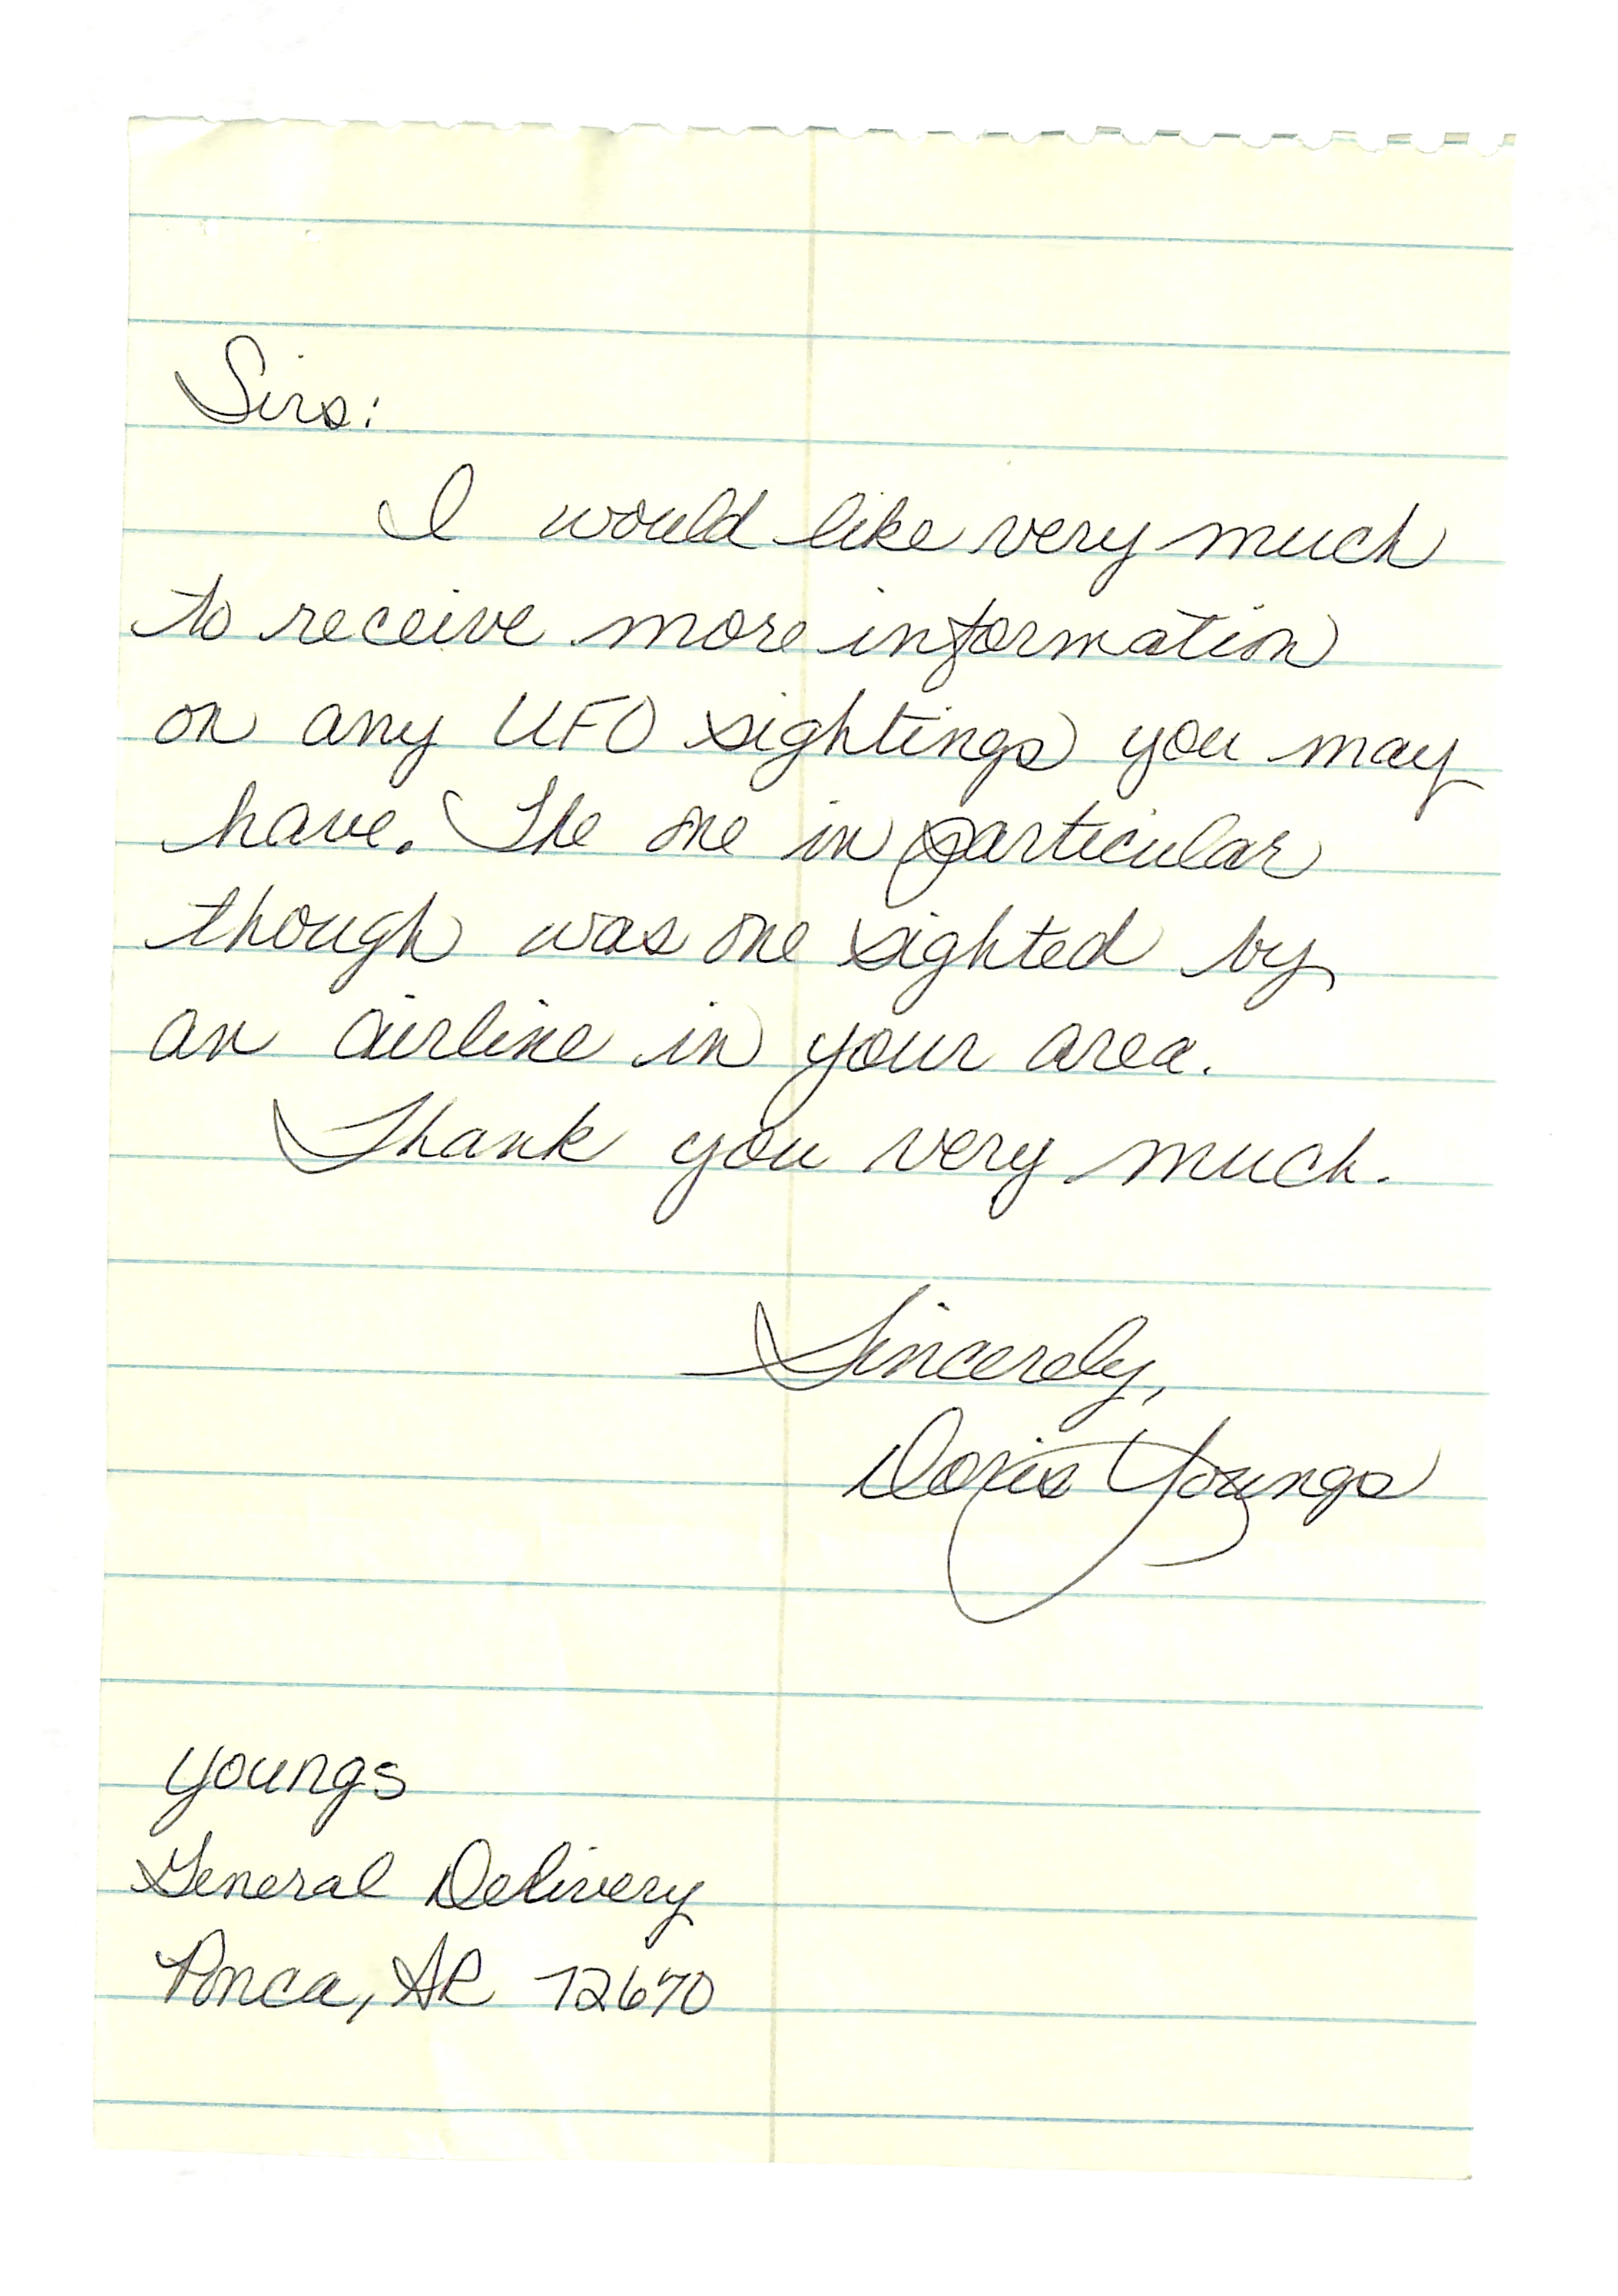 Sirs:
I would like very much
to receive more information
on any UFO sightings you may
have. The one in particular
though was one sighted by
an airline in your area.
Thank you very much.
Sincerely,
Doris Youngs
Youngs
General Delivery
Ponca, AR 72670